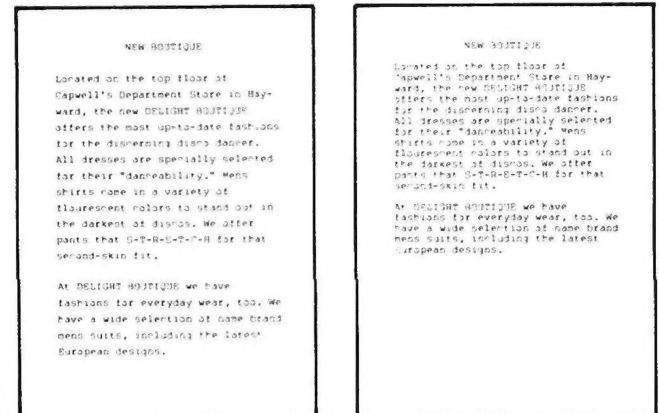 NEW BOUTIQUE
Located on the top floor of
Capwell's Department Store in Hay-
ward, the new DELIGHT BOUTIQUE
offers the most up-to-date fashions
for the discerning disco dancer.
All dresses are specially selected
for their "danceability." Mens
shirts come in a variety of
flourescent colors to stand out in
the darkest of discos. We offer
pants that S-T-R-E-T-C-H for that
second-skin fit.
At DELIGHT BOUTIQUE we have
fashions for everyday wear, too. We
have a wide selection of name brand
mens suits, including the latest
European designs.
NEW BOUTIQUE
Located on the top floor of
Capwell's Department Store in Hay-
ward, the new DELIGHT BOUTIQUE
offers the most up-to-date fashions
for the discerning disco dancer.
All dresses are specially selected
for their "danceability." Mens
shirts come in a variety of
flourescent colors to stand out in
the darkest of discos. We offer
pants that S-T-R-E-T-C-H for that
second-skin fit.
At DELIGHT BOUTIQUE we have
fashions for everyday wear, too. We
have a wide selection of name brand
mens suits, including the latest
European designs.